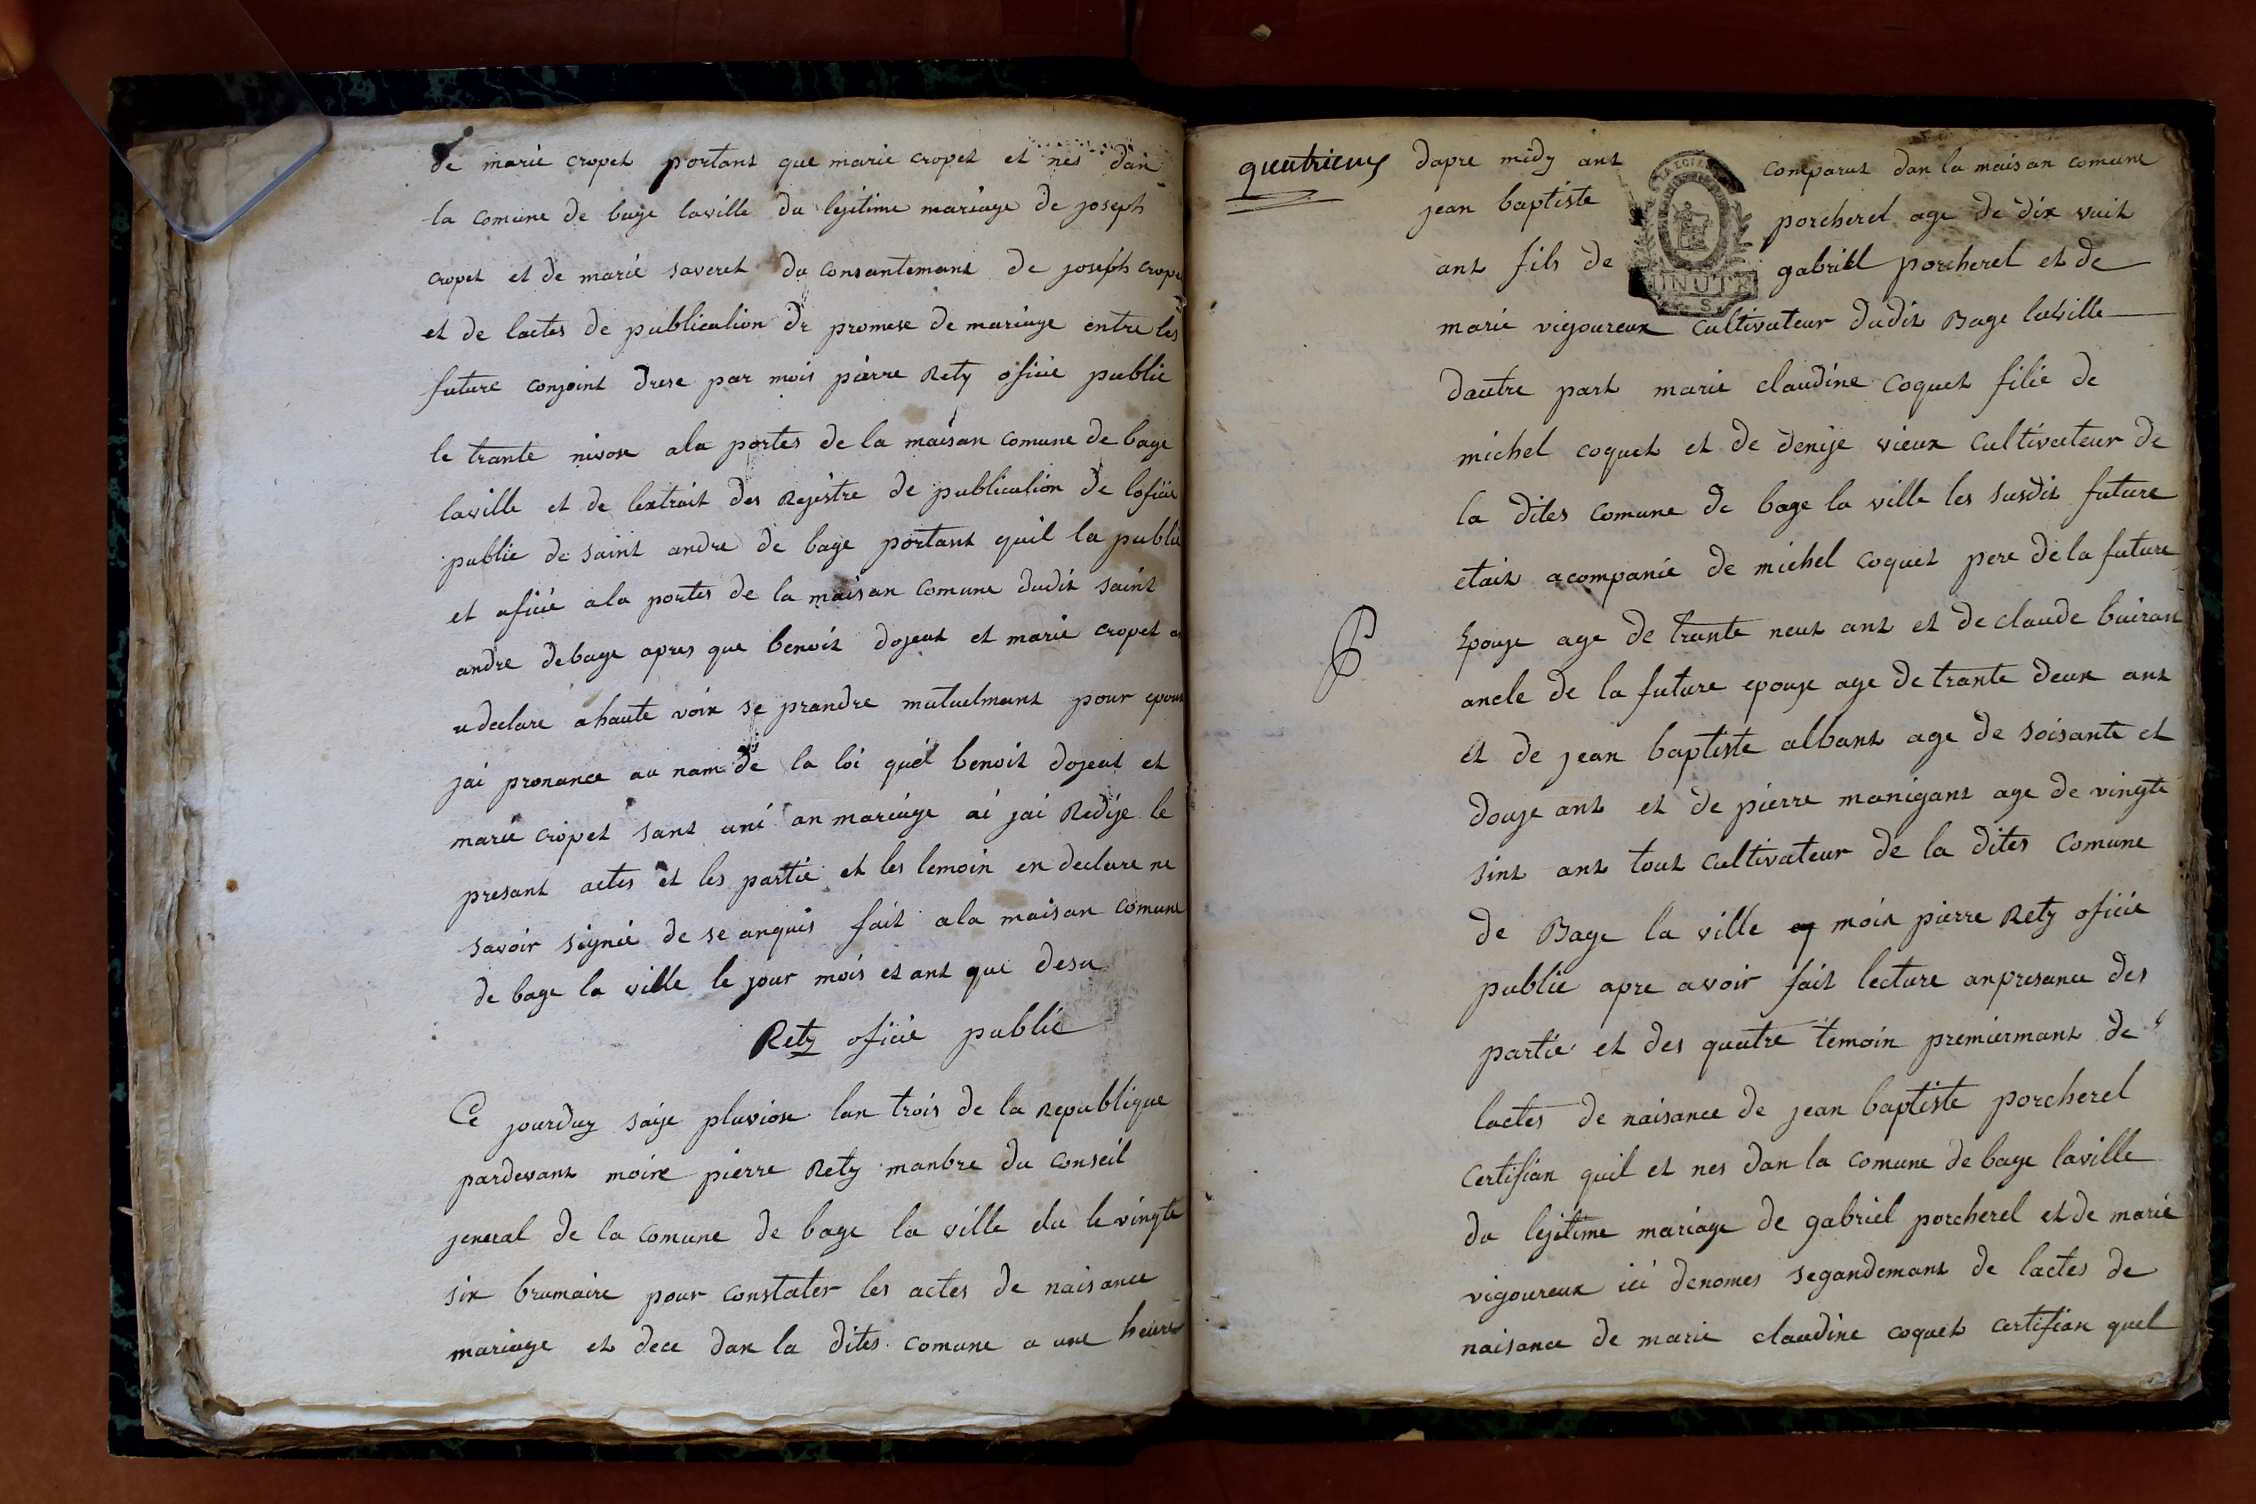 de marie cropet portant que marie cropet et nes dan
la comune de bage laville du lejitime mariage de joseph
cropet et de marie saveret du consantemant de joseph crope
et de lactes de publication de promese de mariage entre les
future conjoint drese par mois pierre Rety oficie public
le trante nivose ala portes de la maisan comune de bage
laville et de lextrait des Rejistre de publication de loficie
public de saint andre de bage portant quil la publie
et aficie ala portes de la maisan comune dudit saint
andre debage apres que benoit dojeut et marie cropet a
udeclare ahaute voix se prandre mutuelmant pour epous
jai pronance au nam de la loi quel benoit dojeut et
marie cropet sant uni an mariage ai jai Redije le
presant actes et les partie et les temoin en declare ne
savoir signié de se anquis fait ala maisan comune
de bage la ville le jour mois et ant que desu
Rety oficie public
Ce jourduy saije pluviose lan trois de la republique
pardevant moix pierre Rety manbre du conseil
jeneral de la comune de bage la ville elu le vingte
six brumaire pour constater les actes de naisance
mariage et dece dan la dites comune a une heure
quatrieme
dapre midy ant comparut dan la maisan comune
jean baptiste porcherel age de dix vuit
ant fils de gabriel porcherel et de
MINUTE
marie vigoureux cultivateur dudit Bage laville
dautre part marie claudine coquet filie de
michel coquet et de denije vieux cultivateur de
la dites comune de bage la ville les susdit future
etait acompanie de michel coquet pere dela future
Epouje age de trante neut ant et de claude buiran
ancle de la future epouje age de trante deux ant
et de jean baptiste albant age de soisante et
douje ant et de pierre manigant age de vingte
sint ant tout cultivateur de la dites comune
de Bage la ville moix pierre Rety oficie
public apre avoir fait lecture anpresance des
partie et des quatre temoin premiermant de
lactes de naisance de jean baptiste porcherel
certifian quil et nes dan la comune de bage laville
du lejitime mariage de gabriel porcherel et de marie
vigoureux ici denomes segandemant de lactes de
naisance de marie claudine coquet certifian quel